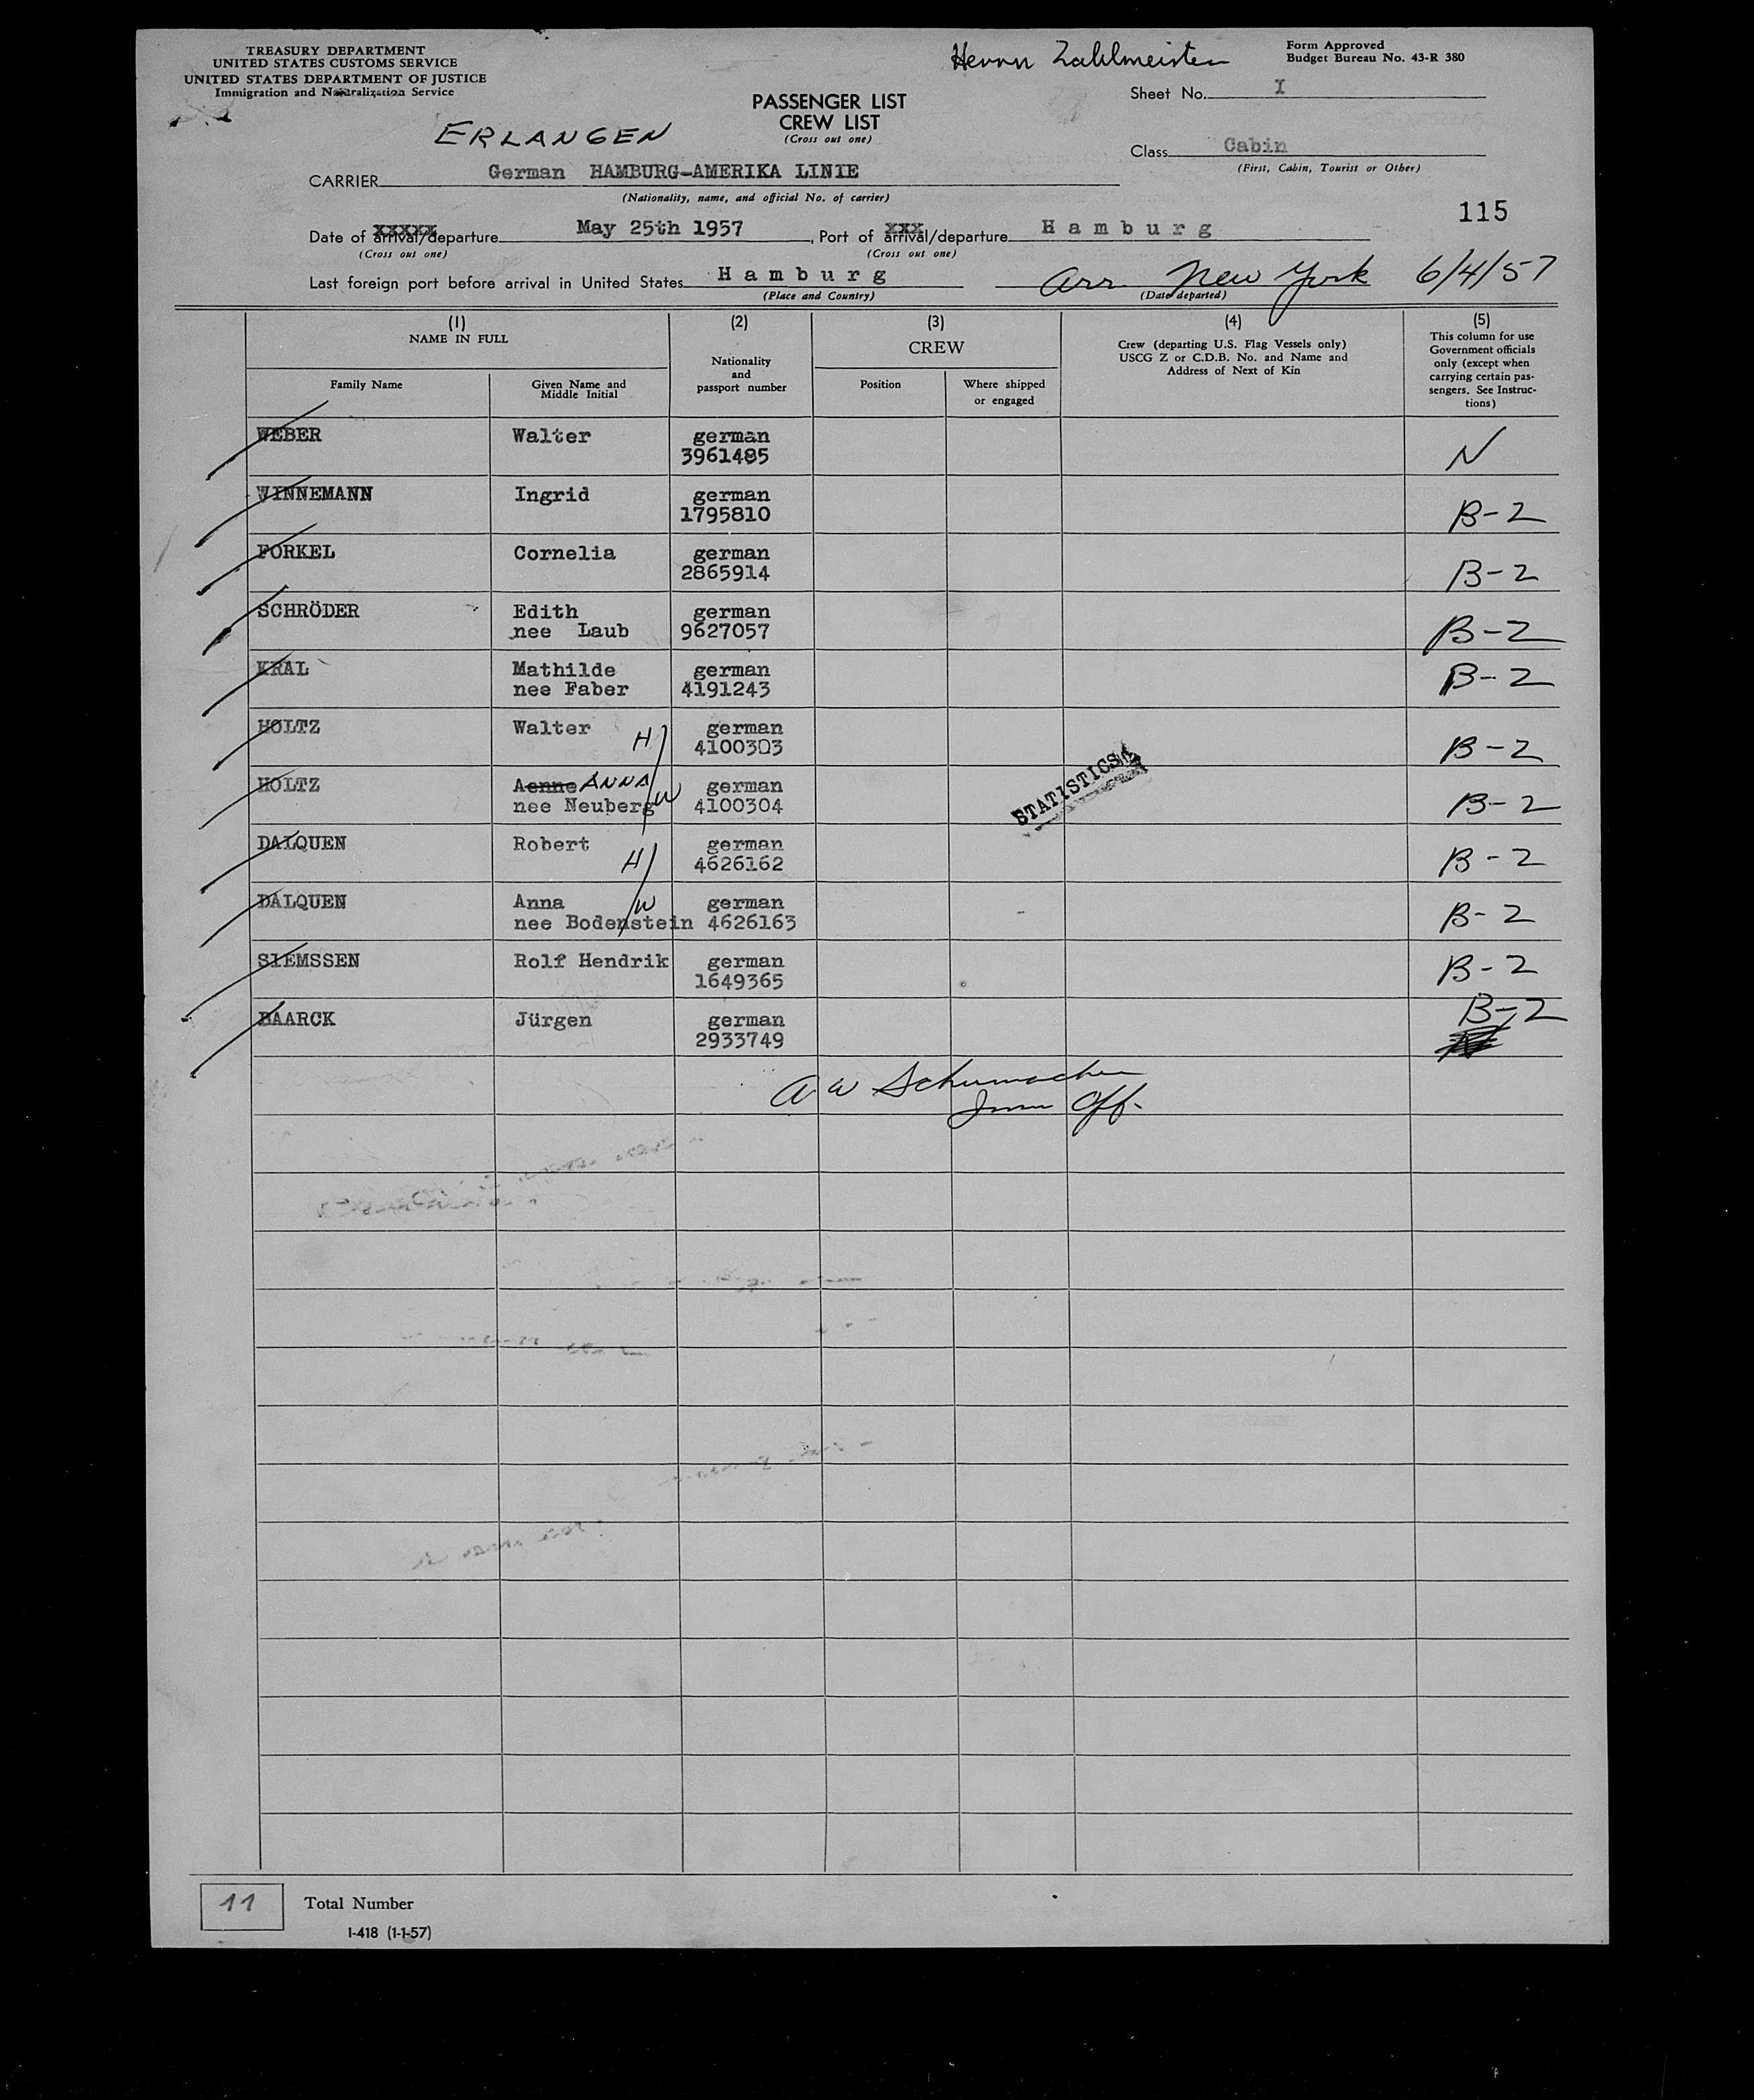 TREASURY DEPARTMENT
UNITED STATES CUSTOMS SERVICE
UNITED STATES DEPARTMENT OF JUSTICE
Immigration and Naturalization Service
Herrn Zahlmeister
Form Approved
Budget Bureau No. 43-R 380
Sheet No. I
PASSENGER LIST
CREW LIST
(Cross out one)
ERLANGEN
Class Cabin
(First, Cabin, Tourist or Other)
CARRIER German HAMBURG-AMERIKA LINIE
(Nationality, name, and official No. of carrier)
115
Date of arrival/departure May 25th 1957, Port of arrival/departure Hamburg
(Cross out one) (Cross out one)
Last foreign port before arrival in United States Hamburg arr New York 6/4/57
(Place and Country) (Date departed)
(1) (2) (3) (4) (5)
NAME IN FULL
Family Name
Given Name and
Middle Initial
Nationality
and
passport number
CREW
Position
Where shipped
or engaged
Crew (departing U.S. Flag Vessels only)
USCG Z or C.D.B. No. and Name and
Address of Next of Kin
This column for use
Government officials
only (except when
carrying certain pas-
sengers. See Instruc-
tions)
WEBER Walter german N
3961485
WINNEMANN Ingrid german
1795810 B-2
FORKEL Cornelia german
2865914 B-2
SCHRÖDER Edith german
nee Laub 9627057 B-2
KRAL Mathilde german B-2
nee Faber 4191243
HOLTZ Walter H german
4100303 B-2
HOLTZ Aenne ANNA german
nee Neuberg W 4100304 B-2
DALQUEN Robert H german
4626162 B-2
DALQUEN Anna W german
nee Bodenstein 4626163 B-2
SIEMSSEN Rolf Hendrik german B-2
1649365
BAARCK Jürgen german B-2
2933749
STATISTICS
A W Schumacher
Imm Off.
11 Total Number
I-418 (1-1-57)